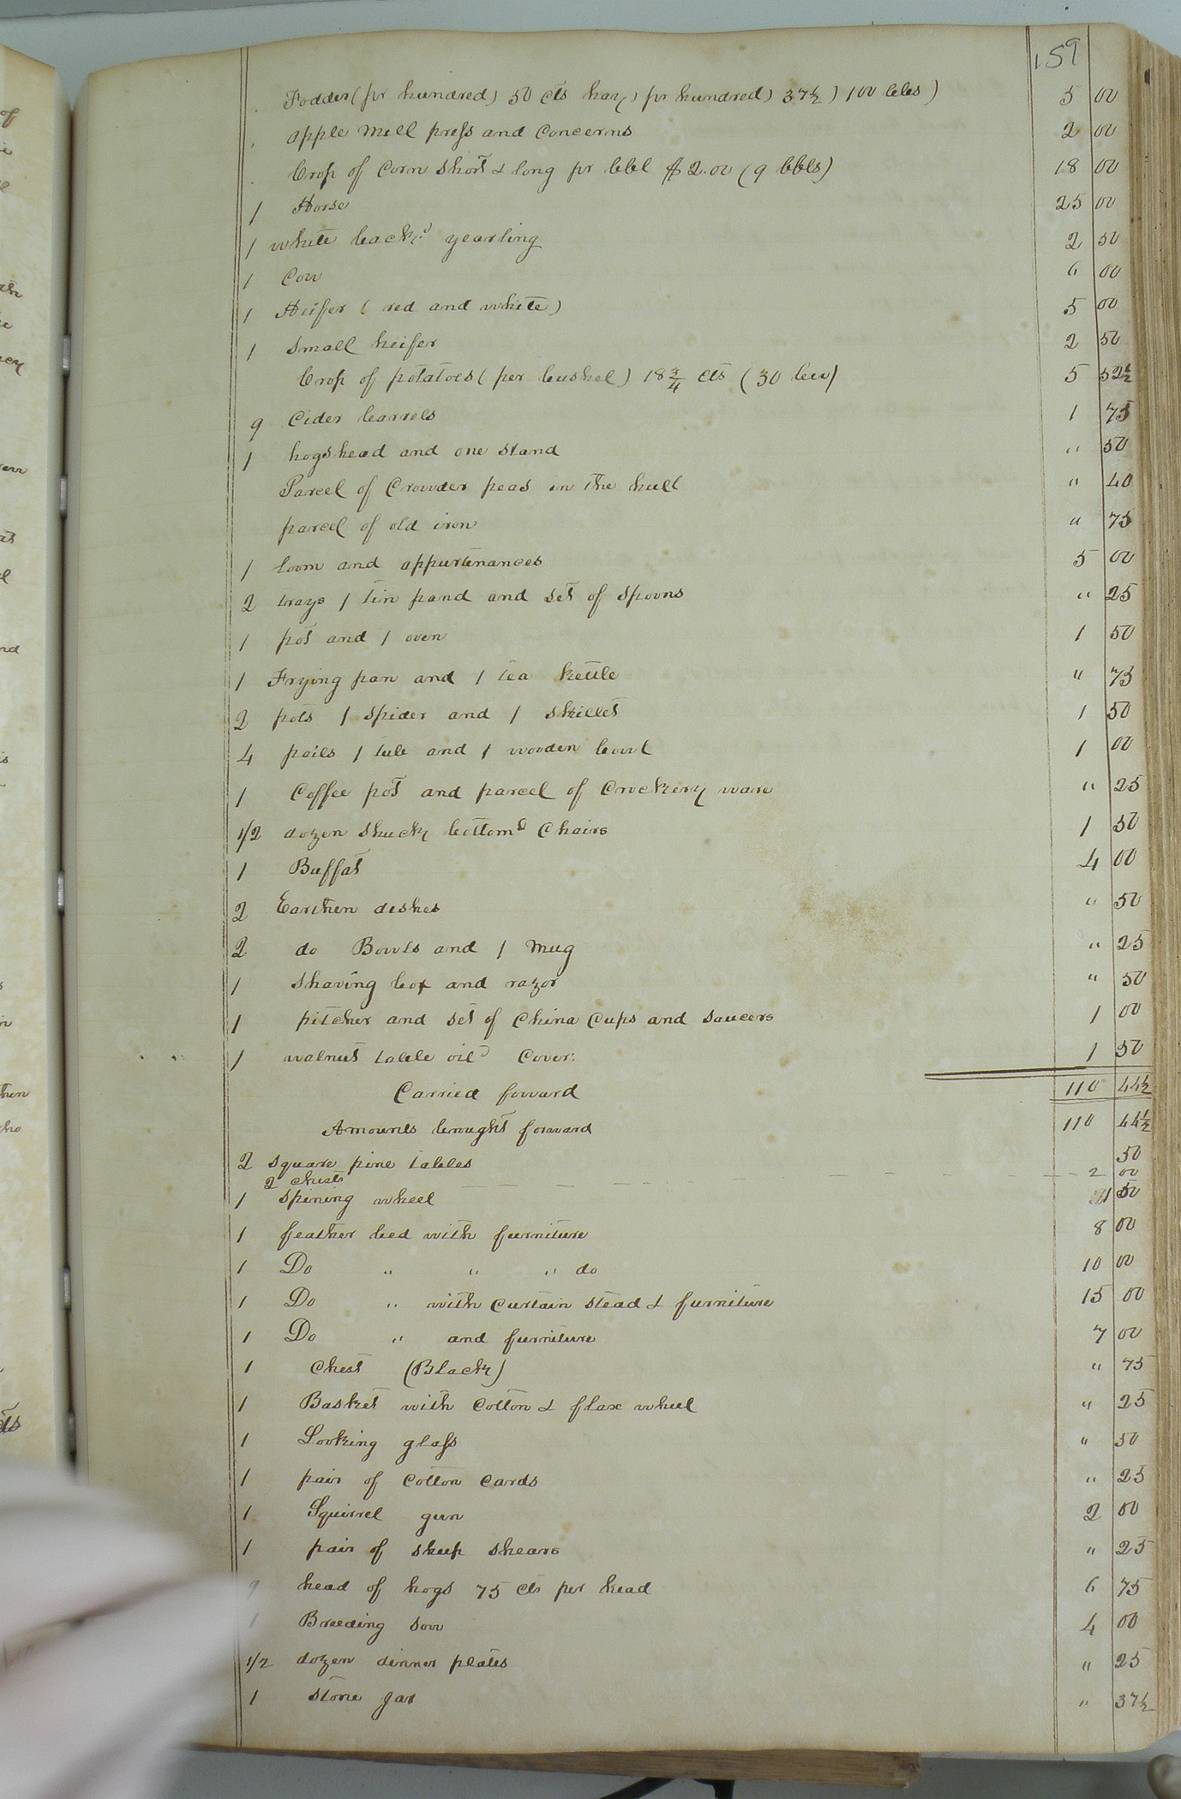 159
Fodder (pr hundred) 50 cts hay) pr hundred) 37½) 100 lbs) 5 00
apple mill press and Concerns 2 00
Crop of Corn short & long pr bbl $2.00 (9 bbls) 18 00
1 Horse 25 00
1 white backd yearling 2 50
1 Cow 6 00
1 Heifer (red and white) 5 00
1 small heifer 2 50
Crop of potatoes (per bushel) 18¾ cts (30 bu) 5 52½
9 Cider barrels 1 75
1 hogshead and one stand " 50
Parcel of Crowder peas in the hull " 40
parcel of old iron " 75
1 loom and appurtenances 5 00
2 trays 1 tin pand and set of spoons " 25
1 pot and 1 oven 1 50
1 Frying pan and 1 tea kettle " 75
2 pots 1 spider and 1 skillet 1 50
4 pails 1 tub and 1 wooden bowl 1 00
1 Coffee pot and parcel of Crockery ware " 25
1/2 dozen shuck bottomd Chairs 1 50
1 Buffat 4 00
2 Earthen dishes " 50
2 do Bowls and 1 mug " 25
1 shaving box and razor " 50
1 pitcher and set of China Cups and saucers 1 00
1 walnut table oild Cover 1 50
Carried forward 110 44½
Amounts brought forward 110 44½
2 square pine tables 50
2 chests 2 00
1 spining wheel 1 50
1 feather bed with furniture 8 00
1 Do " " " do 10 00
1 Do " with Curtain stead & furniture 15 00
1 Do " and furniture 7 00
1 Chest (Black) " 75
1 Basket with Cotton & flax wheel " 25
1 Looking glass " 50
1 pair of Cotton Cards " 25
1 Squirrel gun 2 00
1 pair of sheep shears " 25
9 head of hogs 75 cts per head 6 75
1 Breeding sow 4 00
1/2 dozen dinner plates " 25
1 stone jar " 37½